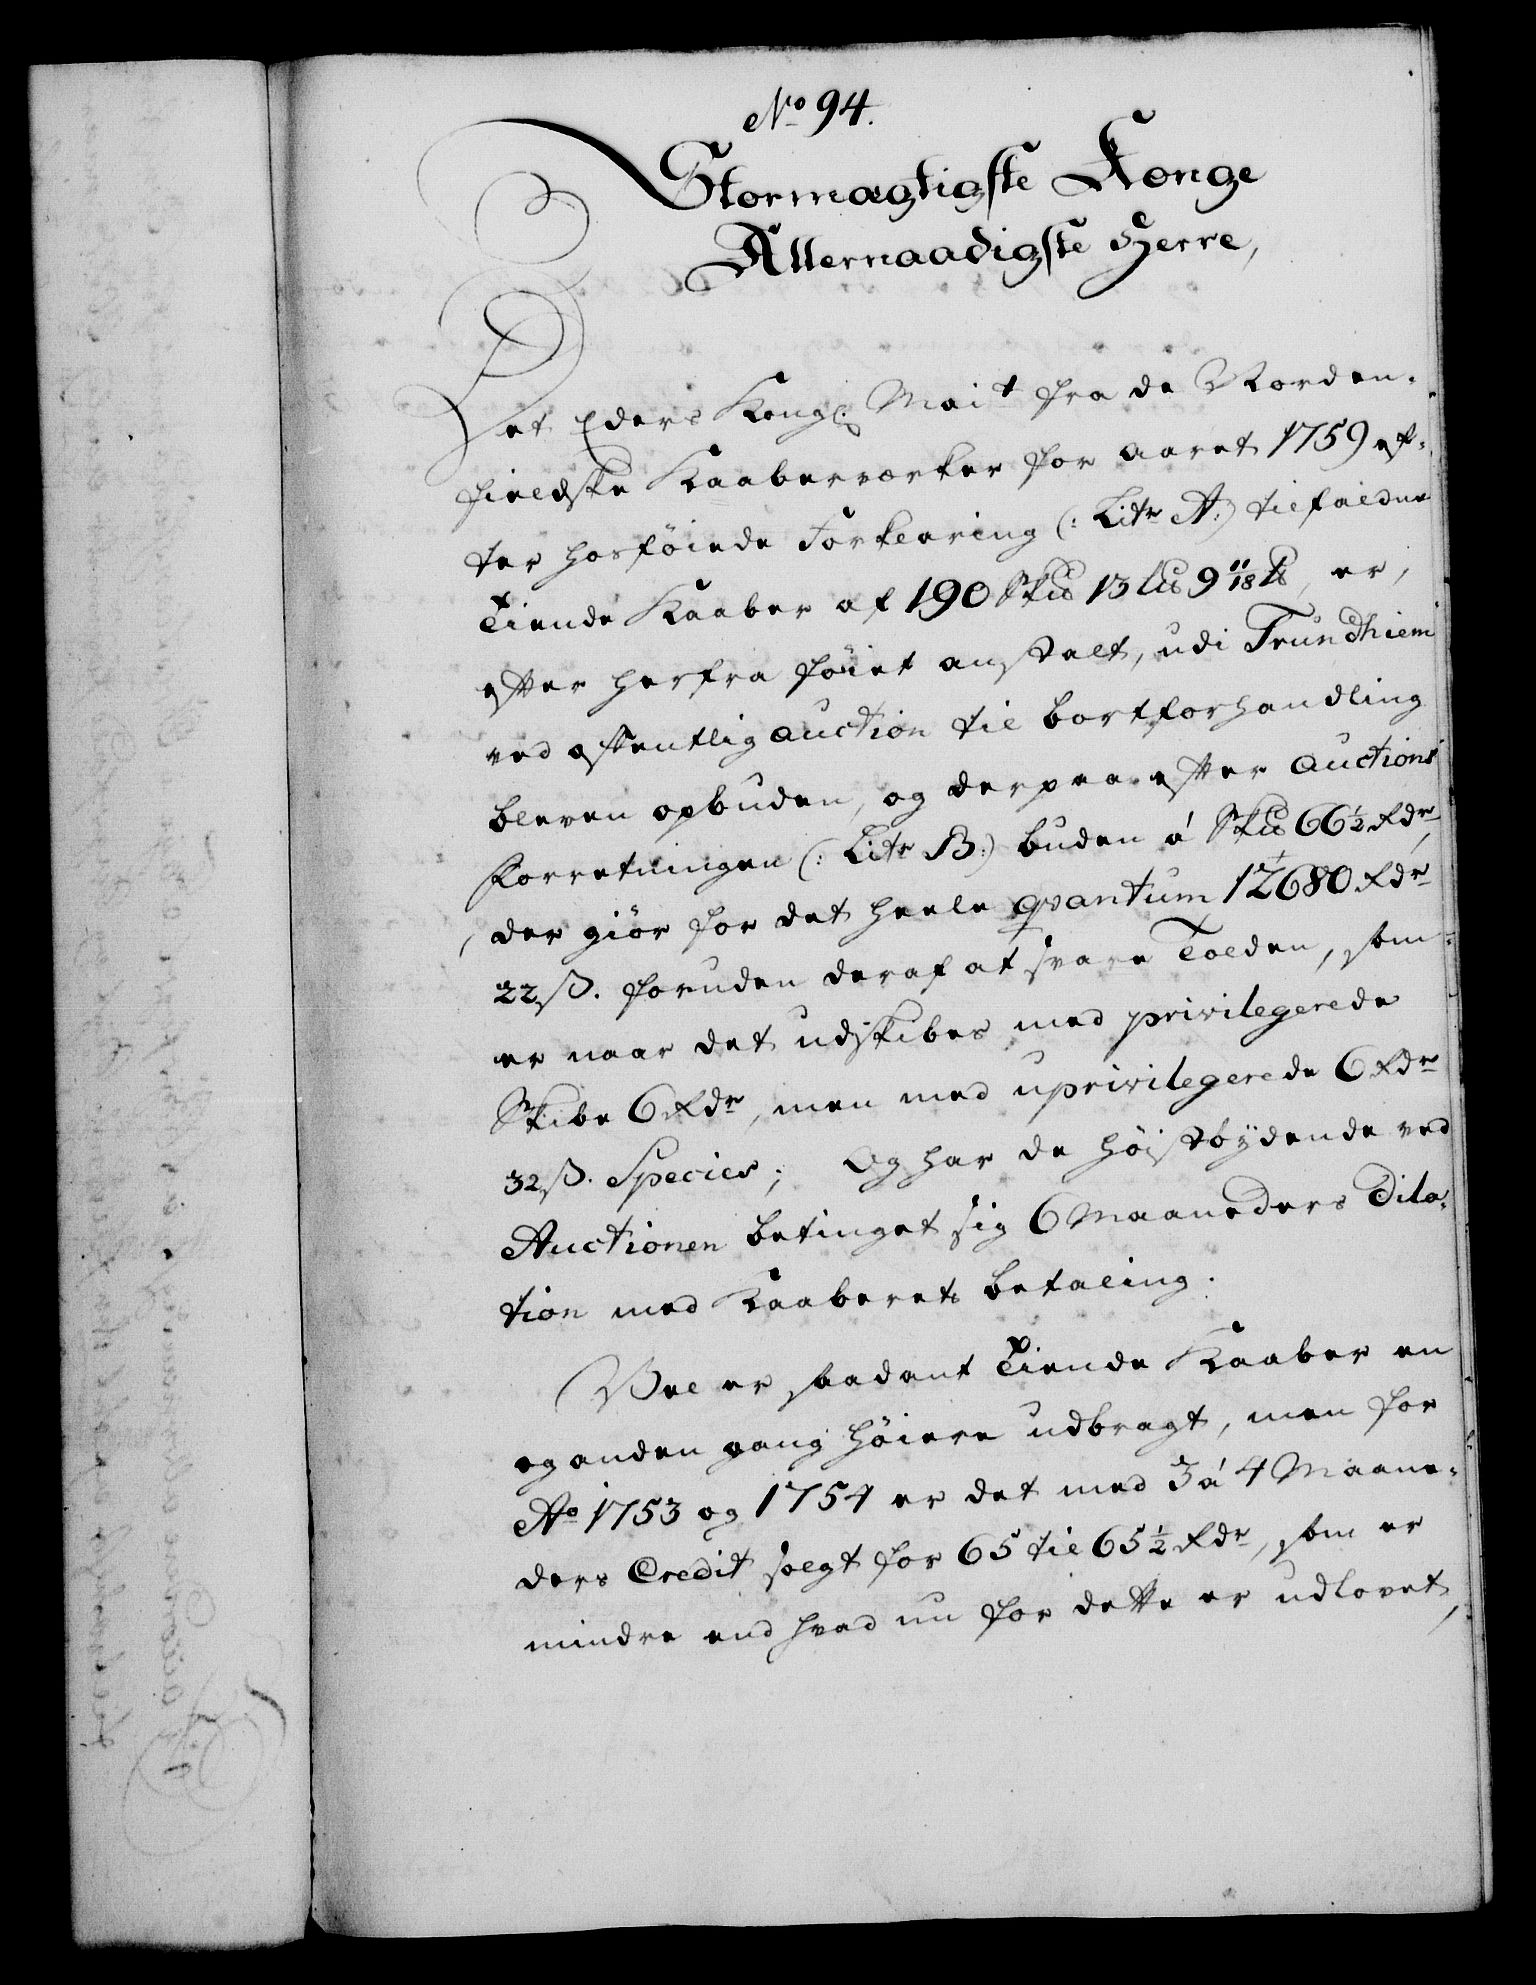 No 94.
Stormægtigste Konge
Allernaadigste Herre,
Det Eders Kongl: Mait fra de Norden-
fieldske Kaaberværker for aaret 1759 ef-
ter hosføiede Forklaring (: Litr A:) tilfaldne
Tiende Kaaber af 190 Sk℔ 13 L℔ 9 11/18 ℔, er,
efter herfra føiet anstalt, udi Trundhiem
ved offentlig auction til bortforhandling
bleven opbuden, og derpaa efter Auctions
Forretningen (: Litr B:) buden á Sk℔ 66½ Rdr,
der giør for det heele qvantum 12680 Rdr
22 ß. foruden deraf at svare Tolden, som
er naar det udskibes med privilegerede
Skibe 6 Rdr, men med uprivilegerede 6 Rdr
32 ß. Species; Og har de høistbydende ved
Auctionen betinget sig 6 Maaneders Dila-
tion med Kaaberets betaling.
Vel er saadant Tiende Kaaber en
og anden gang høiere udbragt, men for
Ao 1753 og 1754 er det med 3 á 4 Maane-
ders Credit solgt for 65 til 65½ Rdr, som er
mindre end hvad nu for dette er udlovet,